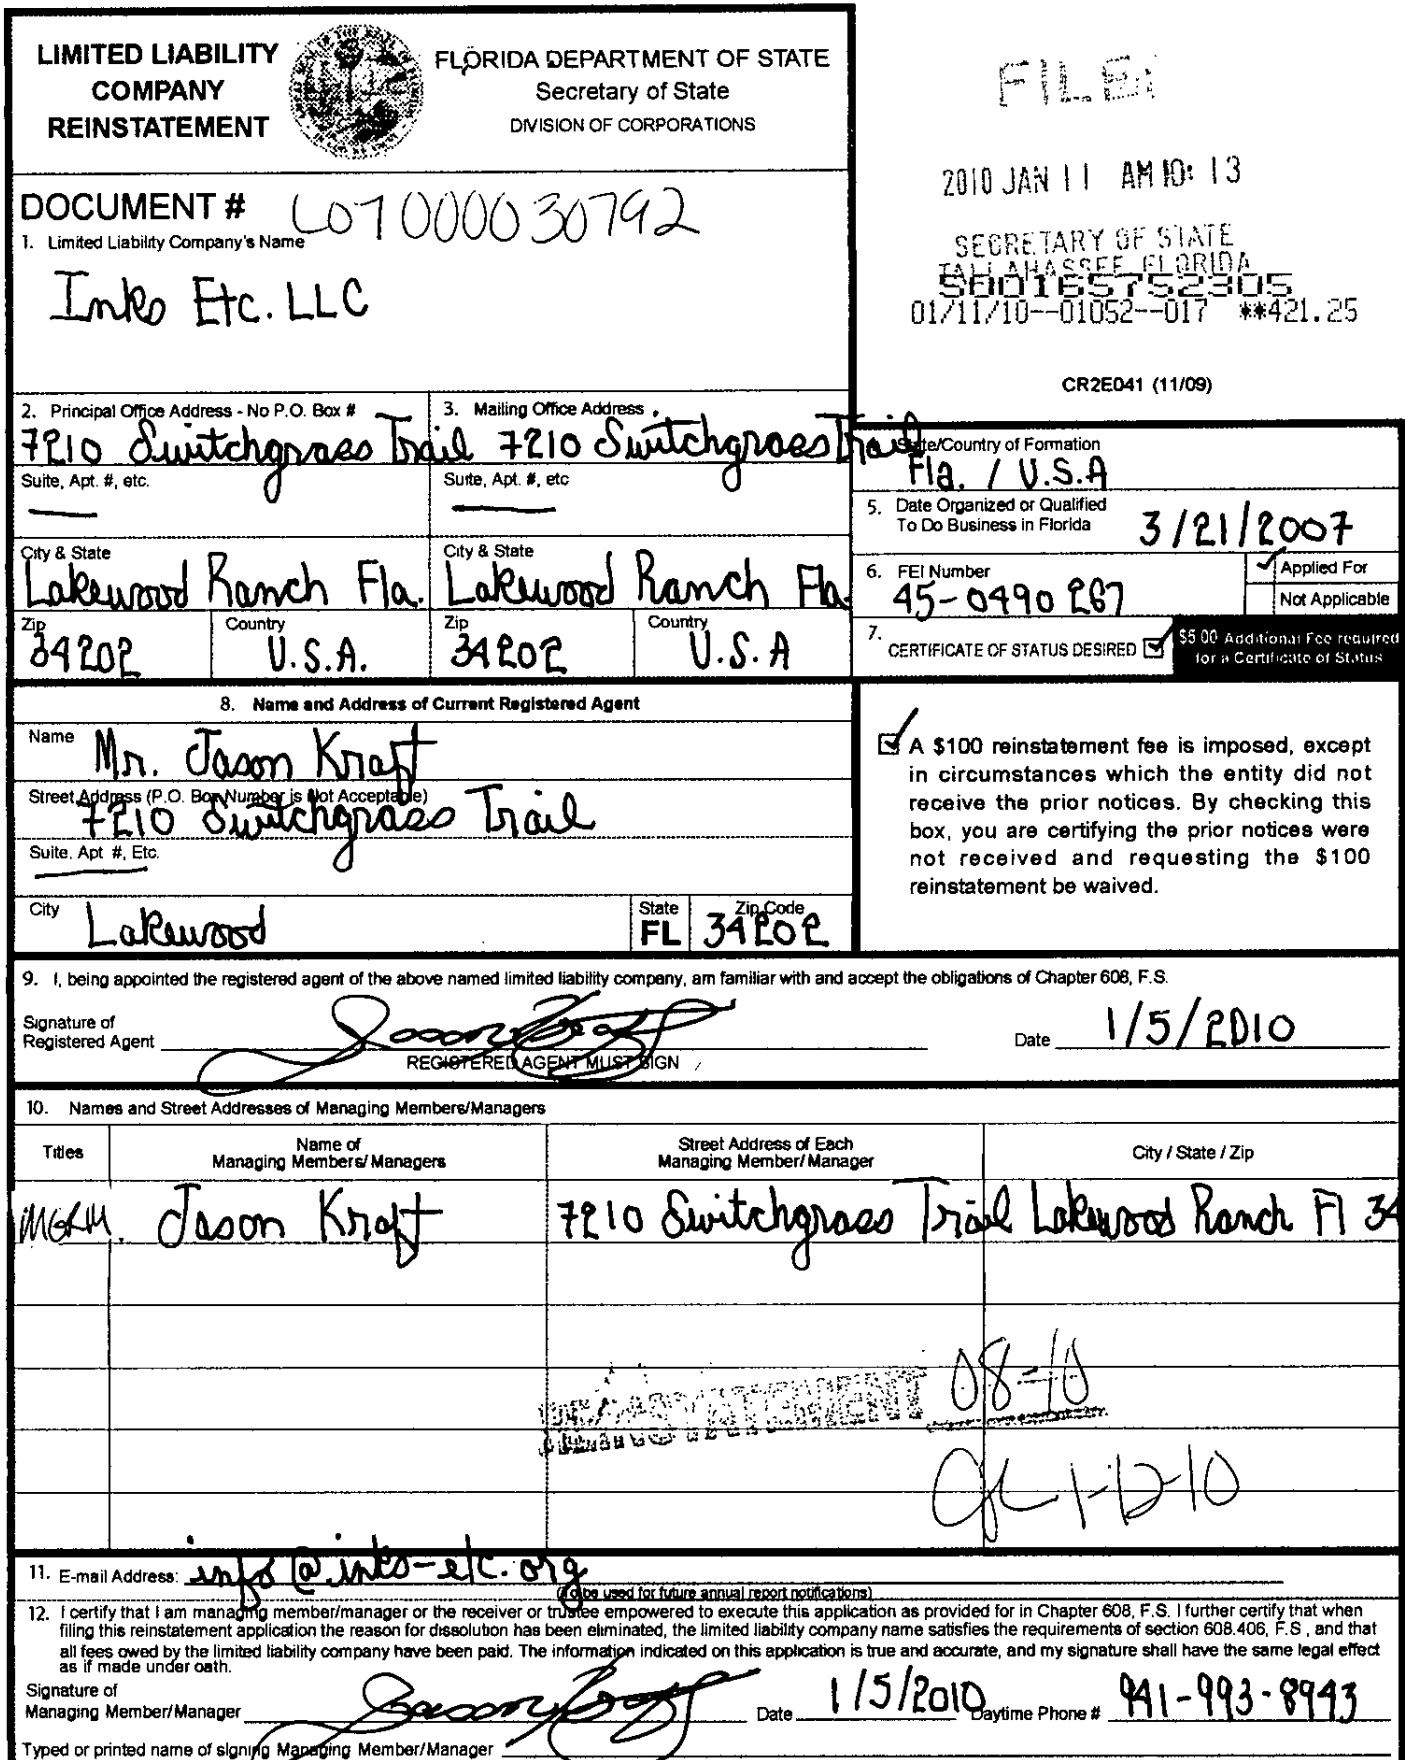 LIMITED LIABILITY
COMPANY
REINSTATEMENT
FLORIDA DEPARTMENT OF STATE
Secretary of State
DIVISION OF CORPORATIONS
FILE
2010 JAN 11 AM 10: 13
SECRETARY OF STATE
TALLAHASSEE FLORIDA
500165752305
01/11/10--01052--017 **421.25
CR2E041 (11/09)
DOCUMENT # L07000030792
1. Limited Liability Company's Name
Inks Etc. LLC
2. Principal Office Address - No P.O. Box #
7210 Switchgrass Trail
3. Mailing Office Address
7210 Switchgrass Trail
Suite, Apt. #, etc.
Suite, Apt. #, etc
City & State
Lakewood Ranch Fla.
City & State
Lakewood Ranch Fla.
Zip
34202
Country
U.S.A.
Zip
34202
Country
U.S.A
State/Country of Formation
Fla. / U.S.A
5. Date Organized or Qualified
To Do Business in Florida
3/21/2007
6. FEI Number
45-0490267
Applied For
Not Applicable
7. CERTIFICATE OF STATUS DESIRED
$5.00 Additional Fee required
for a Certificate of Status
8. Name and Address of Current Registered Agent
Name
Mr. Jason Kraft
Street Address (P.O. Box Number is Not Acceptable)
7210 Switchgrass Trail
Suite, Apt #, Etc.
City
Lakewood
State
FL
Zip Code
34202
A $100 reinstatement fee is imposed, except
in circumstances which the entity did not
receive the prior notices. By checking this
box, you are certifying the prior notices were
not received and requesting the $100
reinstatement be waived.
9. I, being appointed the registered agent of the above named limited liability company, am familiar with and accept the obligations of Chapter 608, F.S.
Signature of
Registered Agent
Jason Kraft
REGISTERED AGENT MUST SIGN
Date 1/5/2010
10. Names and Street Addresses of Managing Members/Managers
Titles
Name of
Managing Members/Managers
Street Address of Each
Managing Member/Manager
City / State / Zip
MGRM. Jason Kraft 7210 Switchgrass Trail Lakewood Ranch Fl 34
REINSTATEMENT 08-10
1-12-10
11. E-mail Address: info@inks-etc.org
(To be used for future annual report notifications)
12. I certify that I am managing member/manager or the receiver or trustee empowered to execute this application as provided for in Chapter 608, F.S. I further certify that when
filing this reinstatement application the reason for dissolution has been eliminated, the limited liability company name satisfies the requirements of section 608.406, F.S., and that
all fees owed by the limited liability company have been paid. The information indicated on this application is true and accurate, and my signature shall have the same legal effect
as if made under oath.
Signature of
Managing Member/Manager
Jason Kraft
Date 1/5/2010
Daytime Phone # 941-993-8943
Typed or printed name of signing Managing Member/Manager